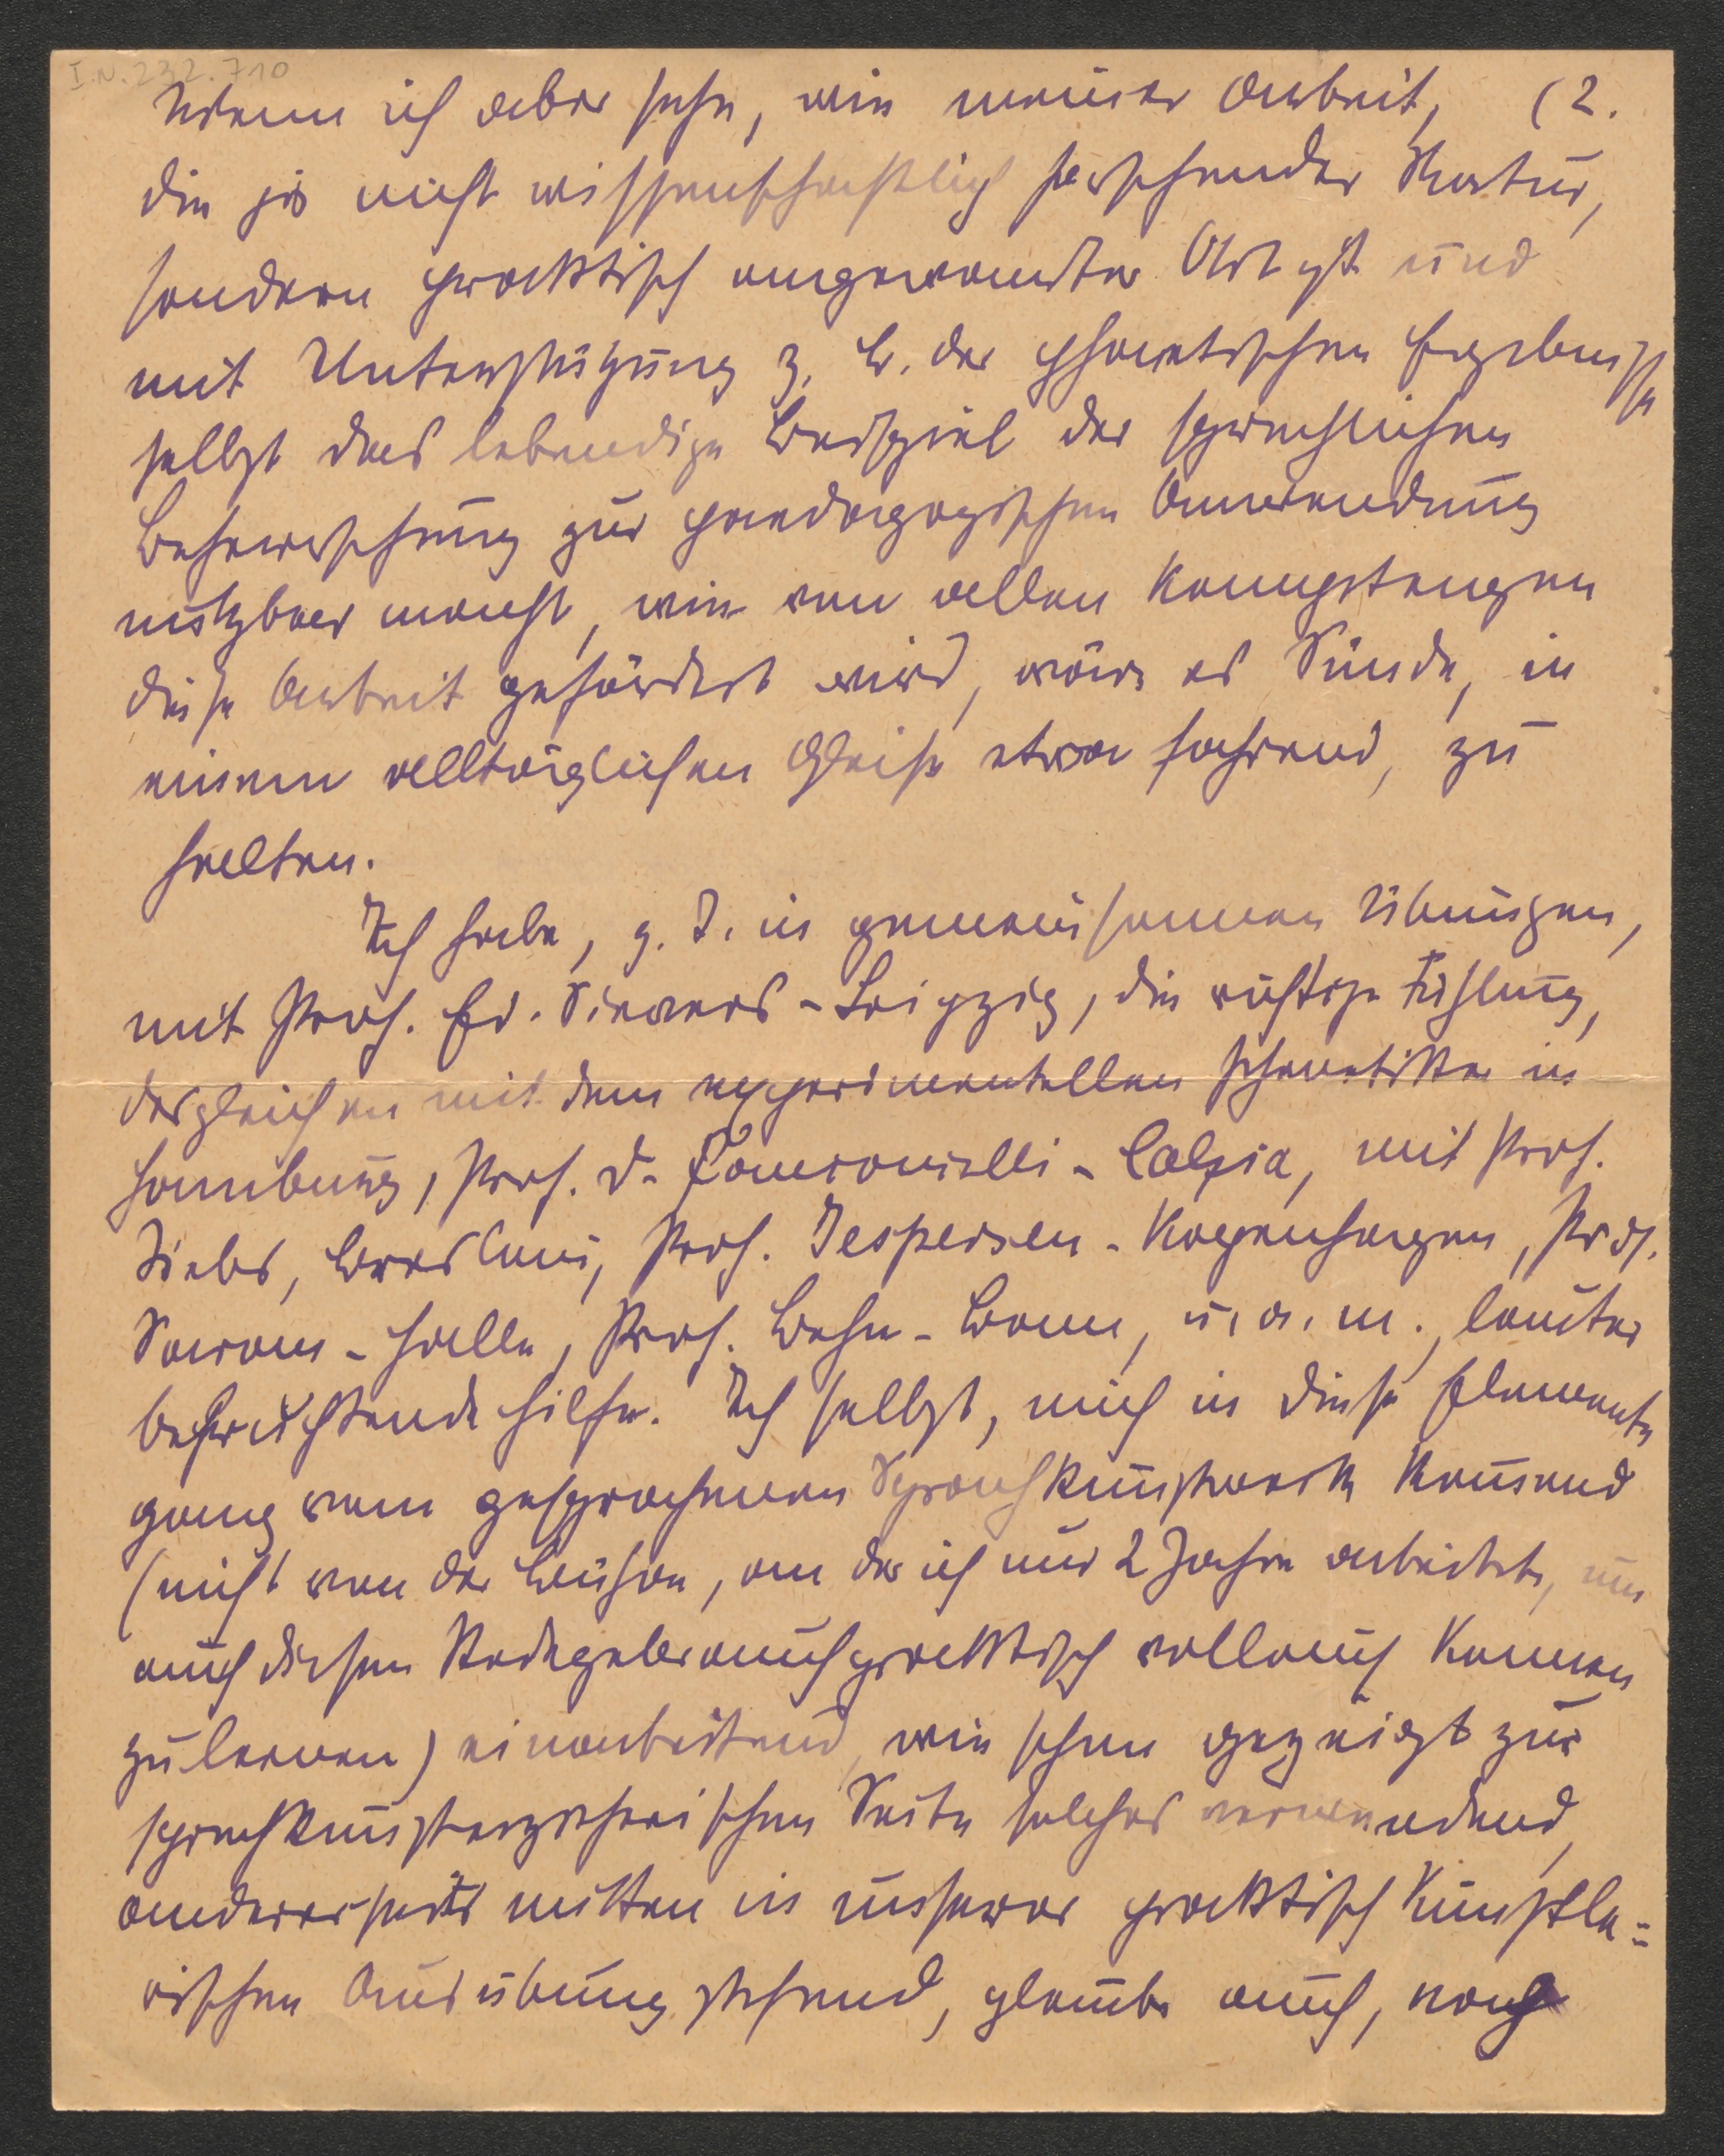 I.N. 232.710
Wenn ich aber sehe, wie meiner Arbeit, (2.
die ja nicht wissenschaftlich forschender Natur,
sondern praktisch angewandter Art ist und
mit Unterstützung z. B. der phonetischen Ergebnisse
selbst das lebendige Beispiel der sprachlichen
Beherrschung zur paedagogischen Anwendung
nutzbar macht, wie von allen Kompetenzen
diese Arbeit gefördert wird, wäre es Sünde, in
einem alltäglichen Gleise etwa fahrend, zu
halten.
Ich habe, z. T. in gemeinsamen Übungen,
mit Prof. Ed. Sievers - Leipzig, die richtige Fühlung,
desgleichen mit dem experimentellen Phonetiker in
Hamburg, Prof. D. Panconcelli - Calzia, mit Prof.
Siebs, Breslau, Prof. Jespersen - Kopenhagen, Prof.
Saran - Halle, Prof. Behn - Bonn, u. a. m., lauter
befruchtende Hilfe. Ich selbst, mich in diese Elemente
ganz vom gesprochenen Sprachkunstwerk kommend
(nicht von der Bühne, an der ich nur 2 Jahre arbeitete, um
auch diesen Redegebrauch praktisch vollauf kennen
zu lernen) einarbeitend, wie schon gezeigt zur
sprachkunsterzieherischen Seite solches verwendend,
andererseits mitten in unserer praktisch künstle=
rischen Ausübung stehend, glaube auch, nach